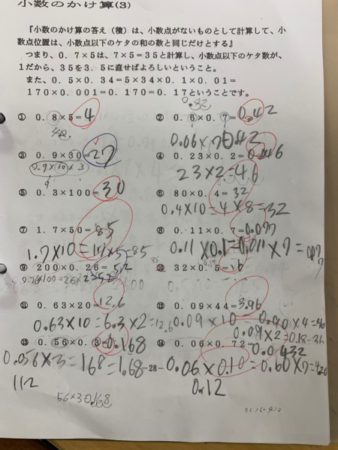 小数のかけ算(3)
『小数のかけ算の答え（積）は、小数点がないものとして計算して、小
数点位置は、小数点以下のケタの和の数と同じだけとする』
つまり、0.7×5は、7×5=35と計算し、小数点以下のケタ数が、
1だから、35を3.5に直せばよろしいということ。
また、0.5×0.34=5×34×0.1×0.01=
170×0.001=0.170=0.17ということです。
① 0.8×5=4
② 0.6×0.7=0.42
③ 0.9×30=27
④ 0.23×0.2=0.046
23×2=46
⑤ 0.3×100=30
⑥ 80×0.4=32
0.4×10=4×8=32
⑦ 1.7×50=85
⑧ 0.11×0.7=0.077
1.7×10=17×5=85
0.11×0.1=0.011×7=
⑨ 200×0.26=52
⑩ 32×0.5=16
⑪ 0.63×20=12.6
⑫ 0.09×44=3.96
0.63×10=6.3×2=12.6
0.09×10
⑬ 0.56×0.3=0.168
⑭ 0.06×0.72=0.0432
0.056×3=168=1.68
0.06×0.10=0.60×7=
112
0.12
56×3 0.168